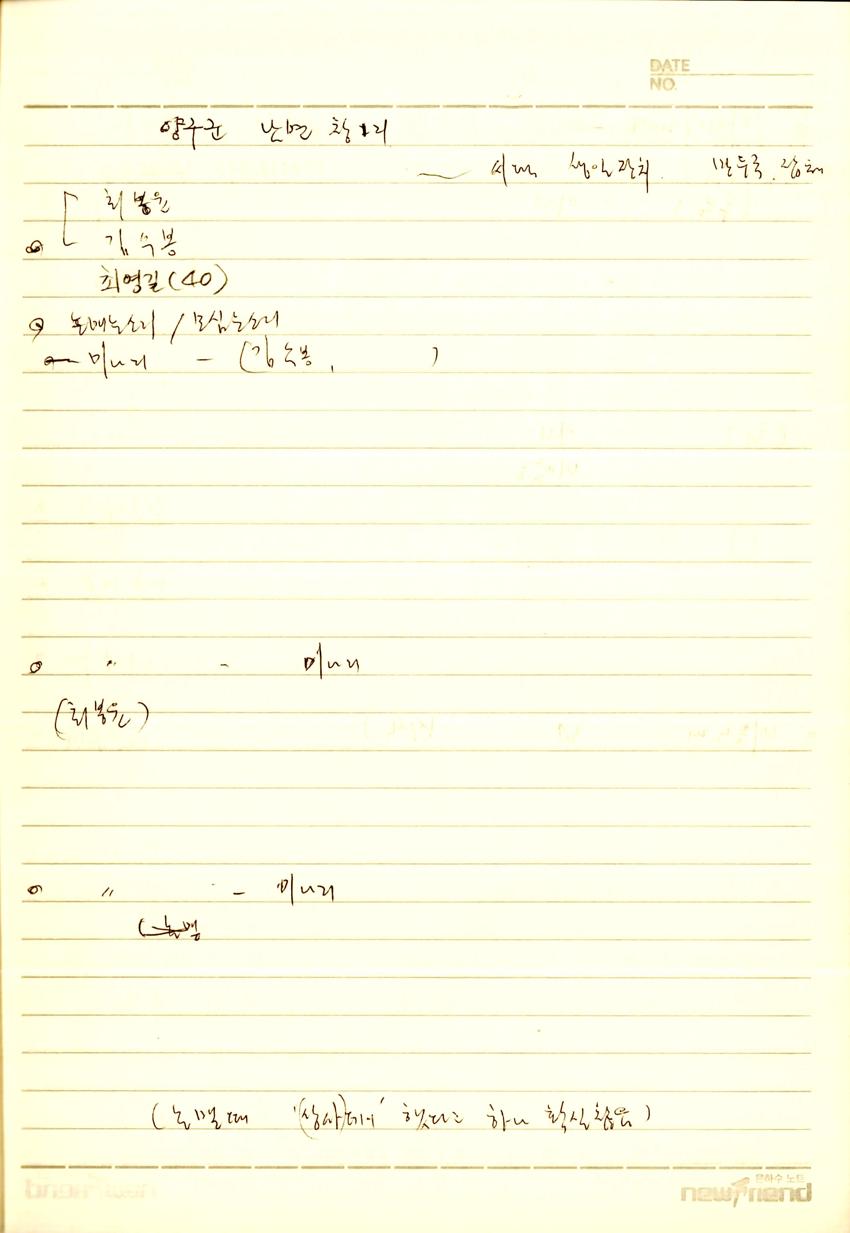 DATE
NO.
양구군 남면 창1리
생일잔치. 만두국, 잡채
최봉원
김수봉
최영길(40)
논매는소리 / 모심는소리
미나리 - (김수봉, )
〃 - 미나리
(최봉원)
〃 - 미나리
(논맬때 '(상사)데이' 했다고 하나 확실찮음)
은하수 노트
newfriend